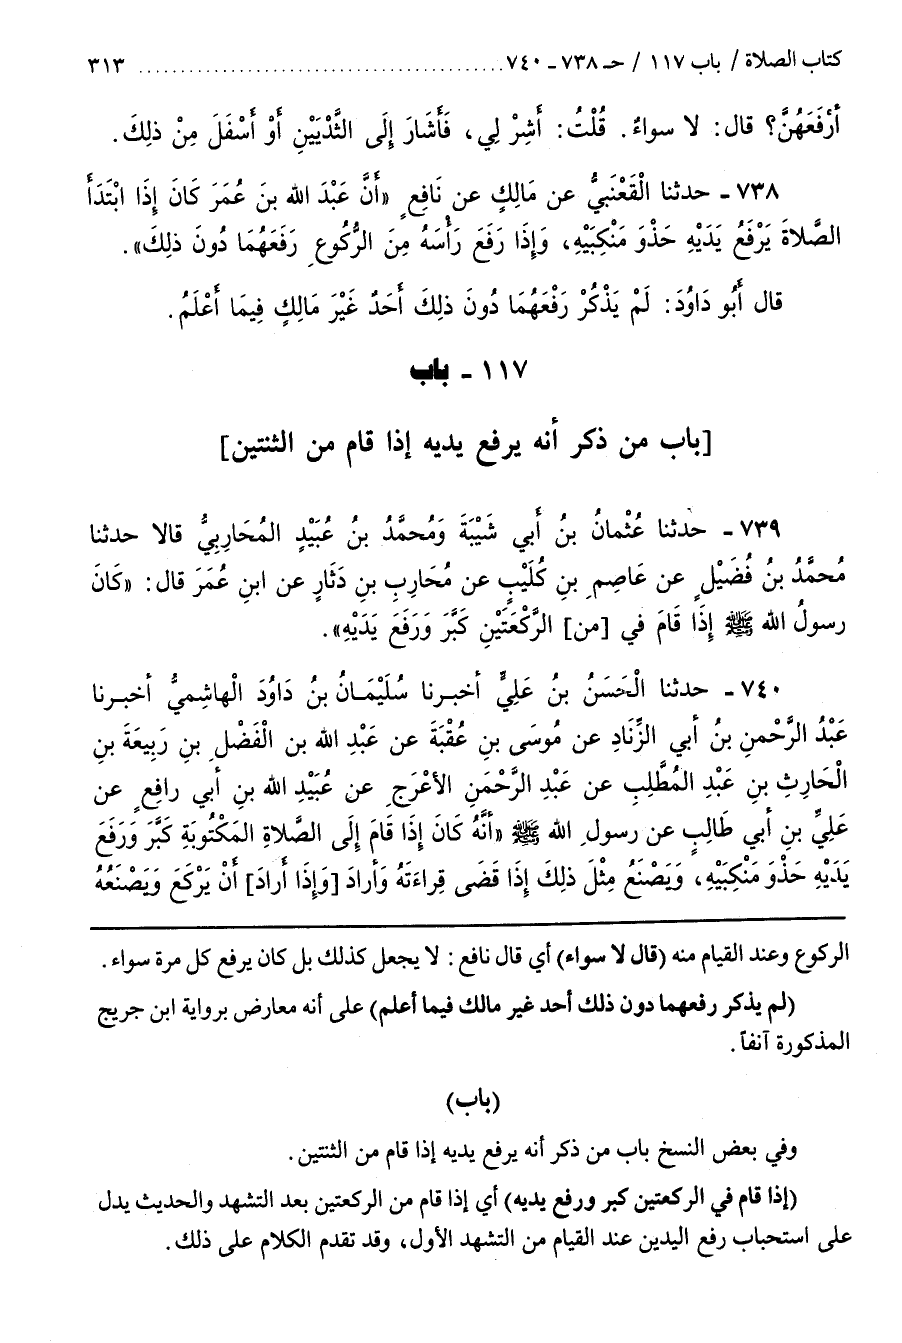 كتاب الصلاة / باب ١١٧ / حـ ٧٣٨ - ٧٤٠ ........................................ ٣١٣
أَرْفَعَهُنَّ؟ قال: لا سواءً. قُلْتُ: أَشِرْ لِي، فَأَشَارَ إِلَى الثَّدْيَيْنِ أَوْ أَسْفَلَ مِنْ ذلِكَ.
٧٣٨ - حدثنا الْقَعْنَبيُّ عن مَالِكٍ عن نَافِعٍ «أَنَّ عَبْدَ الله بنَ عُمَرَ كَانَ إِذَا ابْتَدَأَ
الصَّلاةَ يَرْفَعُ يَدَيْهِ حَذْوَ مَنْكِبَيْهِ، وَإِذَا رَفَعَ رَأْسَهُ مِنَ الرُّكُوعِ رَفَعَهُمَا دُونَ ذلِكَ».
قال أَبُو دَاوُدَ: لَمْ يَذْكُرْ رَفْعَهُمَا دُونَ ذلِكَ أَحَدٌ غَيْرَ مَالِكٍ فِيمَا أَعْلَمُ.
١١٧ - باب
[باب من ذكر أنه يرفع يديه إذا قام من الثنتين]
٧٣٩ - حدثنا عُثْمانُ بنُ أَبي شَيْبَةَ وَمُحمَّدُ بنُ عُبَيْدٍ المُحَارِبيُّ قالا حدثنا
مُحمَّدُ بنُ فُضَيْلٍ عن عَاصِمِ بنِ كُلَيْبٍ عن مُحَارِبِ بنِ دَثَارٍ عن ابنِ عُمَرَ قال: «كَانَ
رسولُ الله ﷺ إِذَا قَامَ في [من] الرَّكْعَتَيْنِ كَبَّرَ وَرَفَعَ يَدَيْهِ».
٧٤٠ - حدثنا الْحَسَنُ بنُ عَلِيٍّ أخبرنا سُلَيْمَانُ بنُ دَاوُدَ الْهاشِميُّ أخبرنا
عَبْدُ الرَّحْمنِ بنُ أبي الزِّنَادِ عن مُوسَى بنِ عُقْبَةَ عن عَبْدِ الله بن الْفَضْلِ بنِ رَبِيعَةَ بنِ
الْحَارِثِ بنِ عَبْدِ المُطَّلِبِ عن عَبْدِ الرَّحْمَنِ الأعْرَجِ عن عُبَيْدِ الله بنِ أبي رافِعٍ عن
عَلِيِّ بنِ أبي طَالِبٍ عن رسولِ الله ﷺ «أَنَّهُ كَانَ إِذَا قَامَ إِلَى الصَّلاةِ المَكْتُوبَةِ كَبَّرَ وَرَفَعَ
يَدَيْهِ حَذْوَ مَنْكِبَيْهِ، وَيَصْنَعُ مِثْلَ ذلِكَ إِذَا قَضَى قِراءَتَهُ وَأَرادَ [وَإِذَا أَرادَ] أَنْ يَرْكَعَ وَيَصْنَعُهُ
الركوع وعند القيام منه (قال لا سواء) أي قال نافع: لا يجعل كذلك بل كان يرفع كل مرة سواء.
(لم يذكر رفعهما دون ذلك أحد غير مالك فيما أعلم) على أنه معارض برواية ابن جريج
المذكورة آنفاً.
(باب)
وفي بعض النسخ باب من ذكر أنه يرفع يديه إذا قام من الثنتين.
(إذا قام في الركعتين كبر ورفع يديه) أي إذا قام من الركعتين بعد التشهد والحديث يدل
على استحباب رفع اليدين عند القيام من التشهد الأول، وقد تقدم الكلام على ذلك.